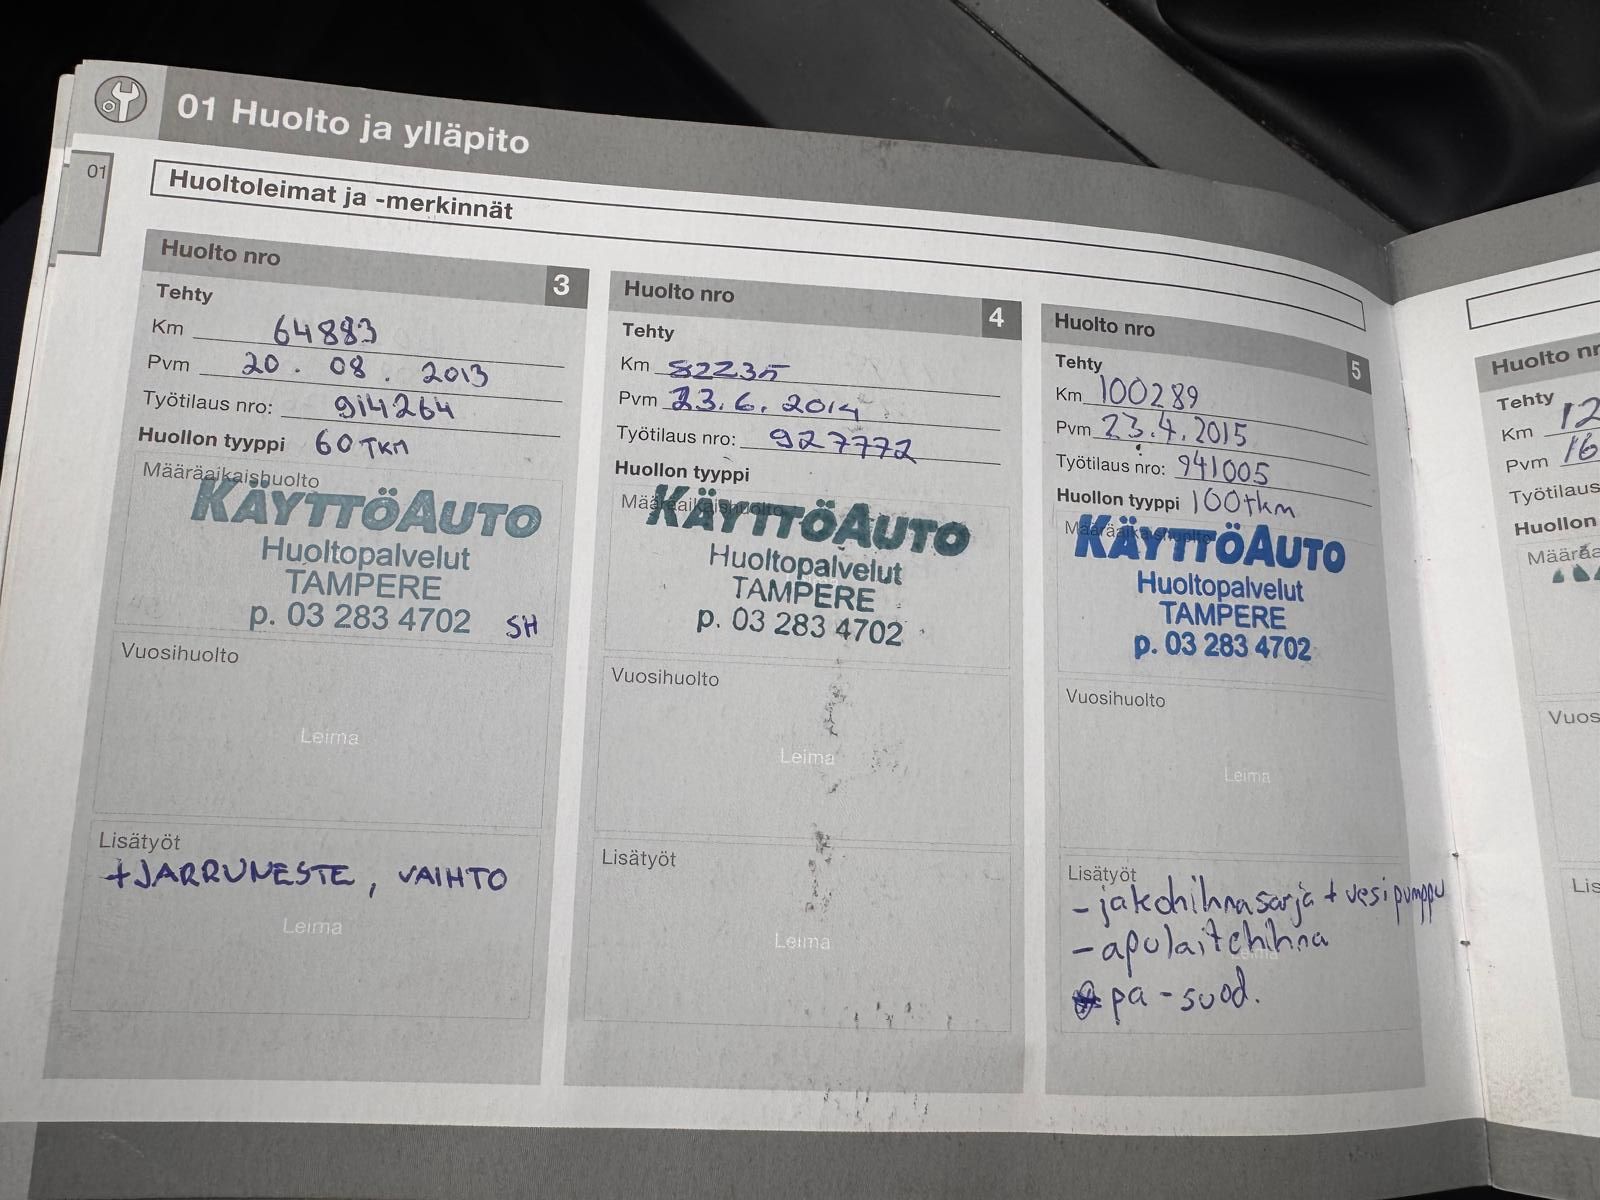 01 Huolto ja ylläpito
01
Huoltoleimat ja -merkinnät
Huolto nro 3
Tehty
Km 64883
Pvm 20. 08. 2013
Työtilaus nro: 914264
Huollon tyyppi 60 TKM
Määräaikaishuolto
KÄYTTÖAUTO
Huoltopalvelut
TAMPERE
p. 03 283 4702 SH
Vuosihuolto
Leima
Lisätyöt
+JARRUNESTE, VAIHTO
Leima
Huolto nro 4
Tehty
Km 82235
Pvm 23.6.2014
Työtilaus nro: 927772
Huollon tyyppi
Määräaikaishuolto
KÄYTTÖAUTO
Huoltopalvelut
TAMPERE
p. 03 283 4702
Vuosihuolto
Leima
Lisätyöt
Leima
Huolto nro 5
Tehty
Km 100289
Pvm 23.4.2015
Työtilaus nro: 941005
Huollon tyyppi 100tkm
Määräaikaishuolto
KÄYTTÖAUTO
Huoltopalvelut
TAMPERE
p. 03 283 4702
Vuosihuolto
Leima
Lisätyöt
- jakohihnasarja + vesipumppu
- apulaitehihna
Leima
pa-suod.
Huolto nr
Tehty
Km 12
Pvm 16
Työtilaus
Huollon
Määräa
Vuos
Lis